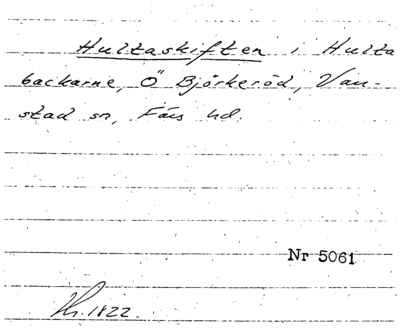 Hultaskiften i Hulta
backarne, Ö Björkeröd, Van-
stad sn, Färs hd.
Nr 5061
1822.